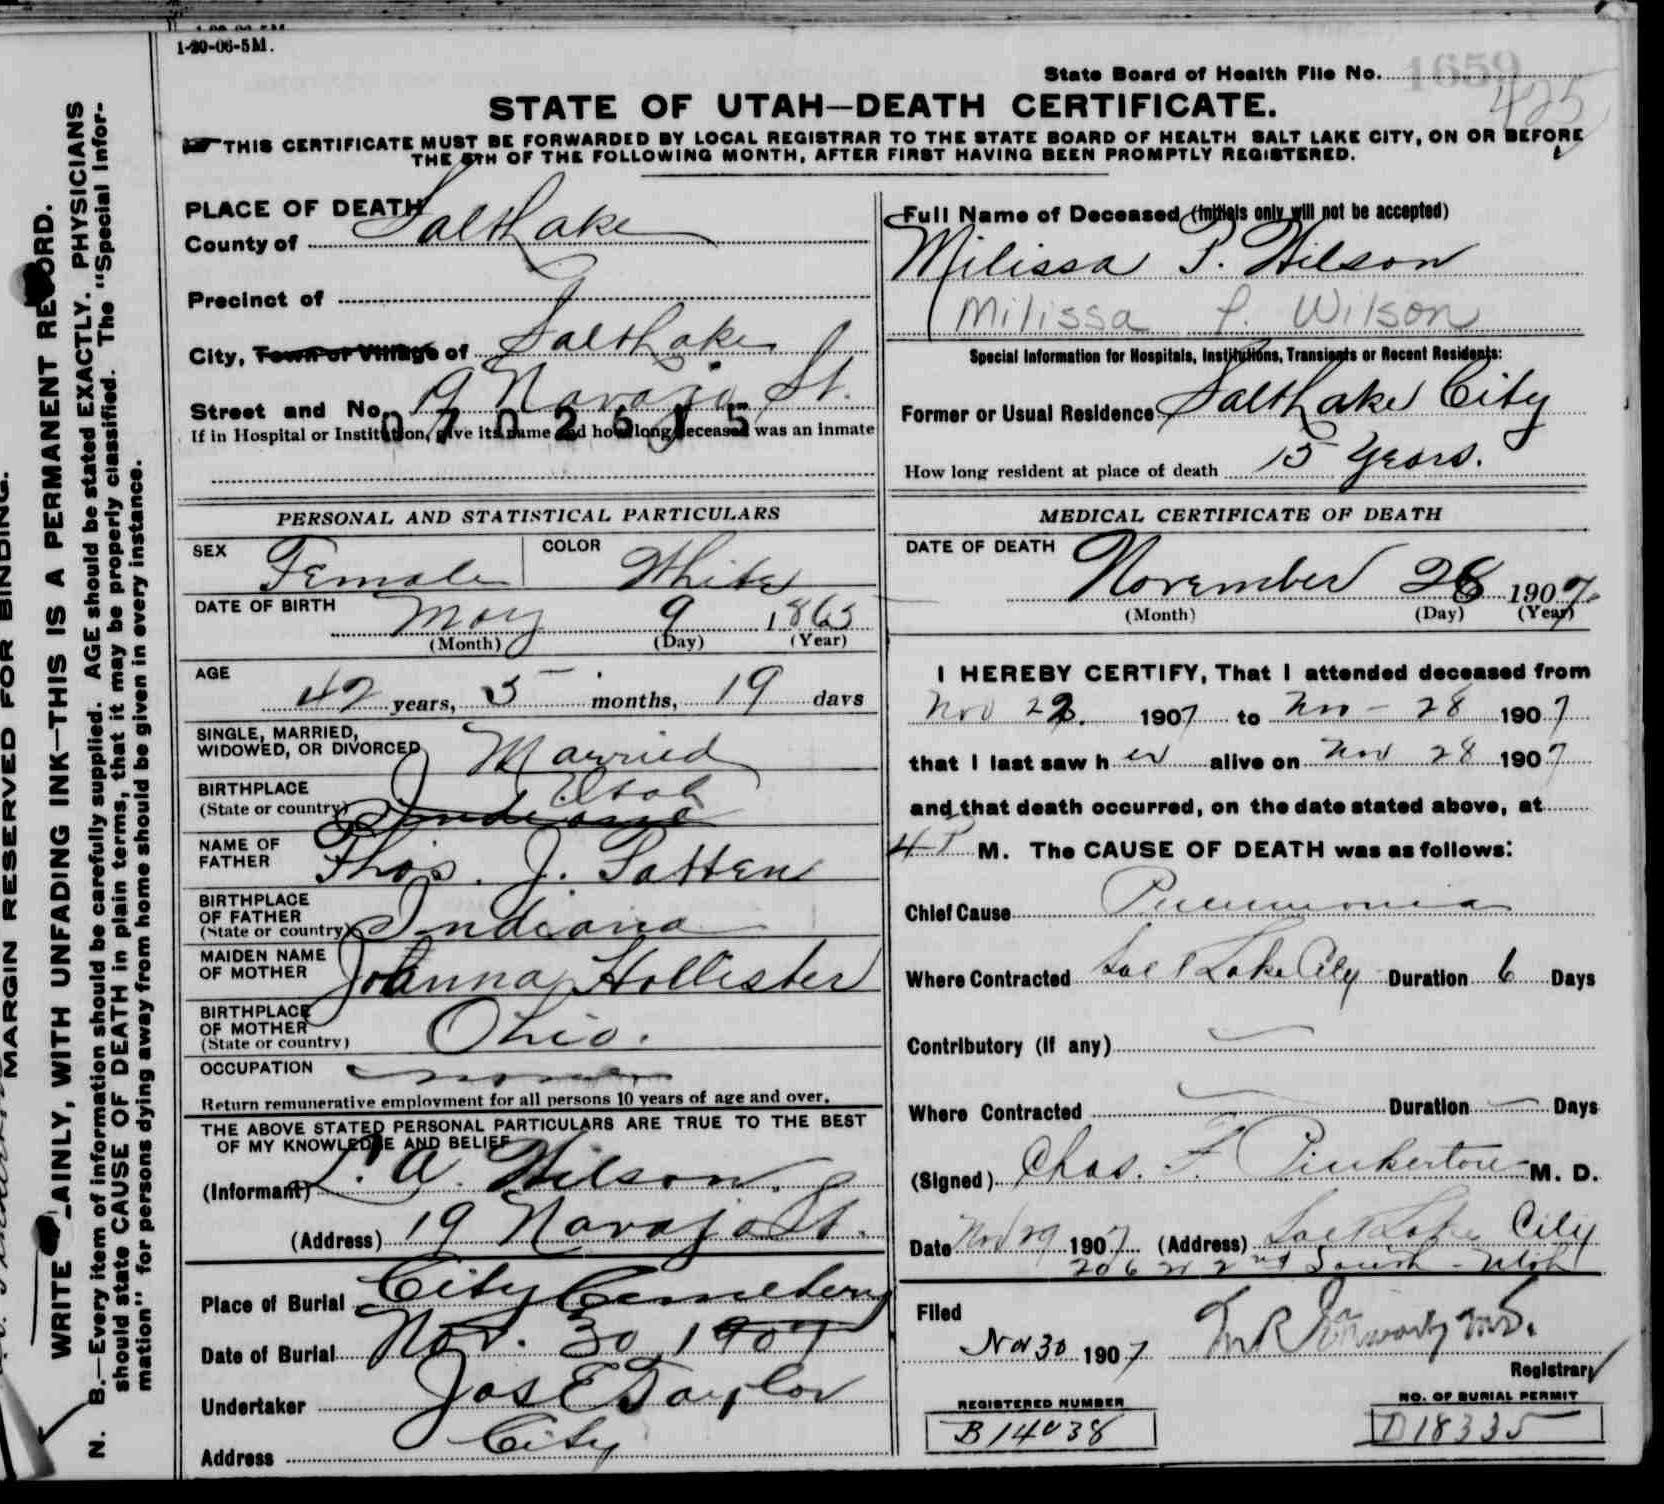 1-20-06-5M.
State Board of Health File No. 1659
425
STATE OF UTAH—DEATH CERTIFICATE.
THIS CERTIFICATE MUST BE FORWARDED BY LOCAL REGISTRAR TO THE STATE BOARD OF HEALTH SALT LAKE CITY, ON OR BEFORE
THE 5TH OF THE FOLLOWING MONTH, AFTER FIRST HAVING BEEN PROMPTLY REGISTERED.
PLACE OF DEATH
County of Salt Lake
Precinct of
City, Town or Village of Salt Lake
Street and No. 19 Navajo St.
0702615
If in Hospital or Institution, give its name and how long deceased was an inmate
Full Name of Deceased (initials only will not be accepted)
Milissa P. Wilson
Milissa P. Wilson
Special Information for Hospitals, Institutions, Transients or Recent Residents:
Former or Usual Residence Salt Lake City
How long resident at place of death 15 Years.
PERSONAL AND STATISTICAL PARTICULARS
SEX Female COLOR White
DATE OF BIRTH May 9 1865
(Month) (Day) (Year)
AGE
42 years, 5 months, 19 days
SINGLE, MARRIED,
WIDOWED, OR DIVORCED Married
BIRTHPLACE Utah
(State or country) Indiana
NAME OF
FATHER Thos. J. Patten
BIRTHPLACE
OF FATHER
(State or country) Indiana
MAIDEN NAME
OF MOTHER Johanna Hollister
BIRTHPLACE
OF MOTHER
(State or country) Ohio.
OCCUPATION
Return remunerative employment for all persons 10 years of age and over.
THE ABOVE STATED PERSONAL PARTICULARS ARE TRUE TO THE BEST
OF MY KNOWLEDGE AND BELIEF
(Informant) L. A. Wilson.
(Address) 19 Navajo St.
Place of Burial City Cemetery
Date of Burial Nov. 30, 1907
Undertaker Jos E Taylor
Address City
MEDICAL CERTIFICATE OF DEATH
DATE OF DEATH November 28 1907
(Month) (Day) (Year)
I HEREBY CERTIFY, That I attended deceased from
Nov 22. 1907 to Nov - 28 1907
that I last saw h er alive on Nov 28 1907
and that death occurred, on the date stated above, at
4 P M. The CAUSE OF DEATH was as follows:
Chief Cause Pneumonia
Where Contracted Salt Lake City Duration 6 Days
Contributory (If any)
Where Contracted Duration Days
(Signed) Chas. F. Pinkerton M. D.
Date Nov 29 1907 (Address) Salt Lake City
206 2nd South - Utah
Filed
Nov 30 1907
Registrar
REGISTERED NUMBER
B14038
NO. OF BURIAL PERMIT
D18335
MARGIN RESERVED FOR BINDING.
WRITE PLAINLY, WITH UNFADING INK—THIS IS A PERMANENT RECORD.
N. B.—Every item of information should be carefully supplied. AGE should be stated EXACTLY. PHYSICIANS
should state CAUSE OF DEATH in plain terms, that it may be properly classified. The "Special Infor-
mation" for persons dying away from home should be given in every instance.